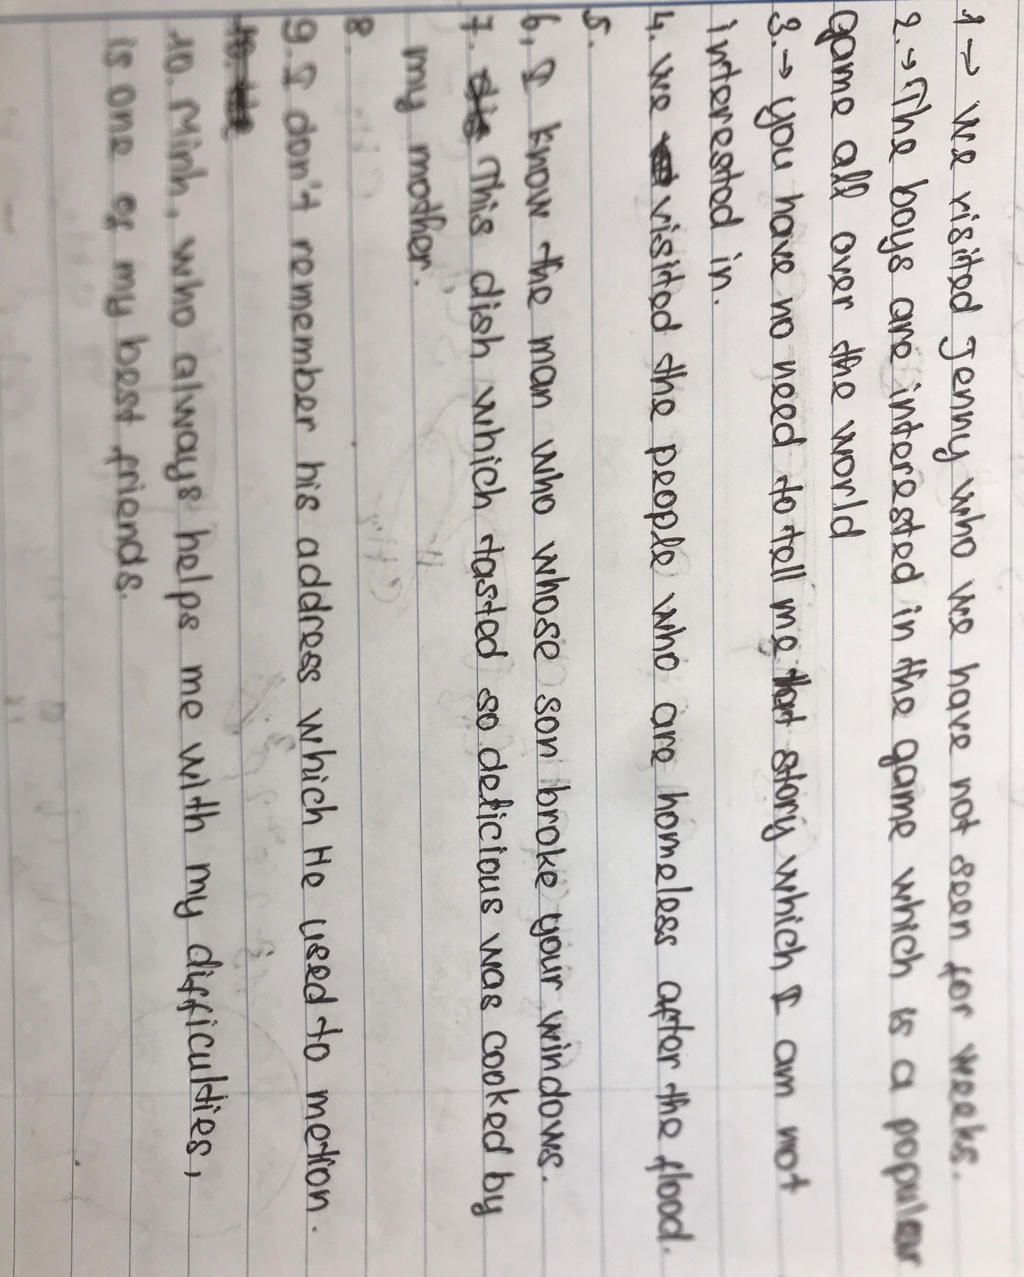 1 → We visited Jenny who we have not seen for weeks.
2. → The boys are interested in the game which is a popular
game all over the world
3. → you have no need to tell me that story which I am not
interested in.
4. We visited the people who are homeless after the flood.
5.
6, I know the man who whose son broke your windows.
7. This dish which tasted so delicious was cooked by
my mother.
8.
9. I don't remember his address which He used to metion.
10. Minh, who always helps me with my difficulties,
is one of my best friends.